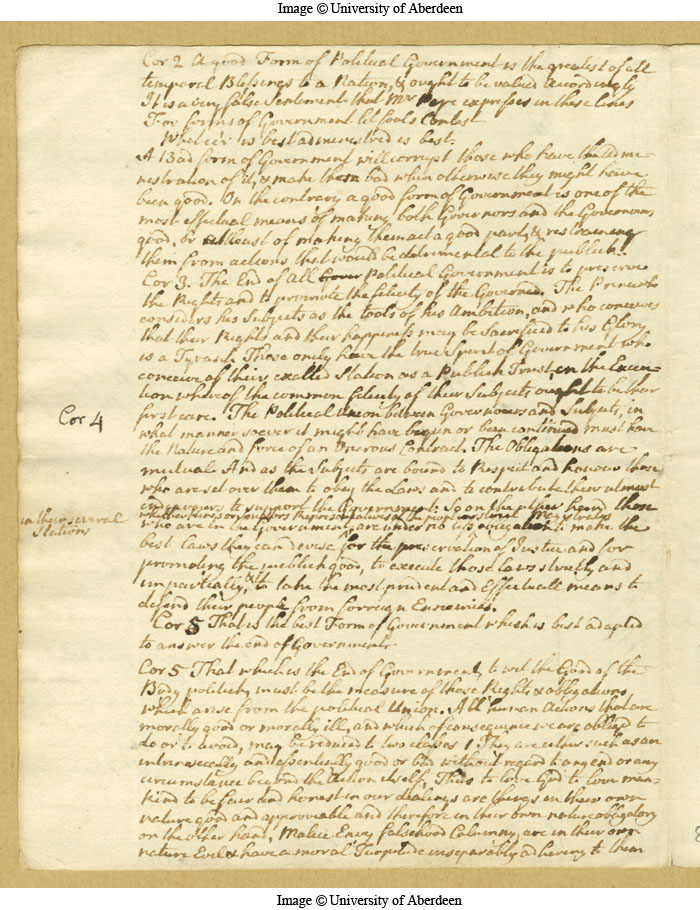 Image © University of Aberdeen
Cor 2 A good Form of Political Government is the greatest of all
temporal Blessings to a Nation, & ought to be valued accordingly
It is a very false Sentiment that Mr Pope expresses in these lines
For forms of Government let fools Contest
What e'er is best administred is best.
A Bad form of Government will corrupt those who have the admi-
nistration of it, & make them bad when otherwise they might have
been good. On the contrary a good form of Government is one of the
most effectual means of making both Governors and the Governors
good, or atleast of making them act a good part, & restraining
them from actions that would be detrimental to the publick.
Cor 3. The End of all Political Government is to preserve
the Rights and to promote the felicity of the Governed. The Prince who
considers his Subjects as the tools of his Ambition, and who conceives
that their Rights and their happiness may be Sacrificed to his Glory
is a Tyrant. Those only have the true Spirit of Government who
conceive of their exalted Station as a Publick Trust, in the Execu-
tion whereof the common felicity of their Subjects ought to be their
first care.
Cor 4
The Political Union between Governours and Subjects, in
what manner soever it might have begun or been continued must have
the Nature and force of an Onerous Contract. The Obligations are
mutual. And as the Subjects are bound to Respect and honour those
who are set over them to obey the Laws and to contribute their utmost
endeavours to support the Government; So on the other hand those
who are in the Government,
in their several
Stations
are under no less obligation to make the
best Laws they can devise for the preservation of Justice and for
promoting the publick good, to execute those laws strictly and
impartially, & to take the most prudent and Effectuall means to
defend their people from forreign Enemies.
Cor 5 That is the best Form of Government which is best adapted
to answer the end of Government.
Cor 5 That which is the End of Government, to wit the Good of the
Body politick, must be the measure of those Rights & obligations
which arise from the political Union. All human Actions that are
morally good or morally ill, and which of consequence we are obliged to
do or to avoid, may be reduced to two classes 1 They are either such as are
intrinsecally and essentially good or bad without regard to any end or any
circumstance beyond the Action itself. Thus to love God to love man-
kind to be fair and honest in our dealings are things in their own
nature good and approveable and therefore in their own nature obligatory
on the other hand, Malice Envy falsehood Calumny, are in their own
nature Evil & have a moral Turpitude inseparably adhering to them
Image © University of Aberdeen